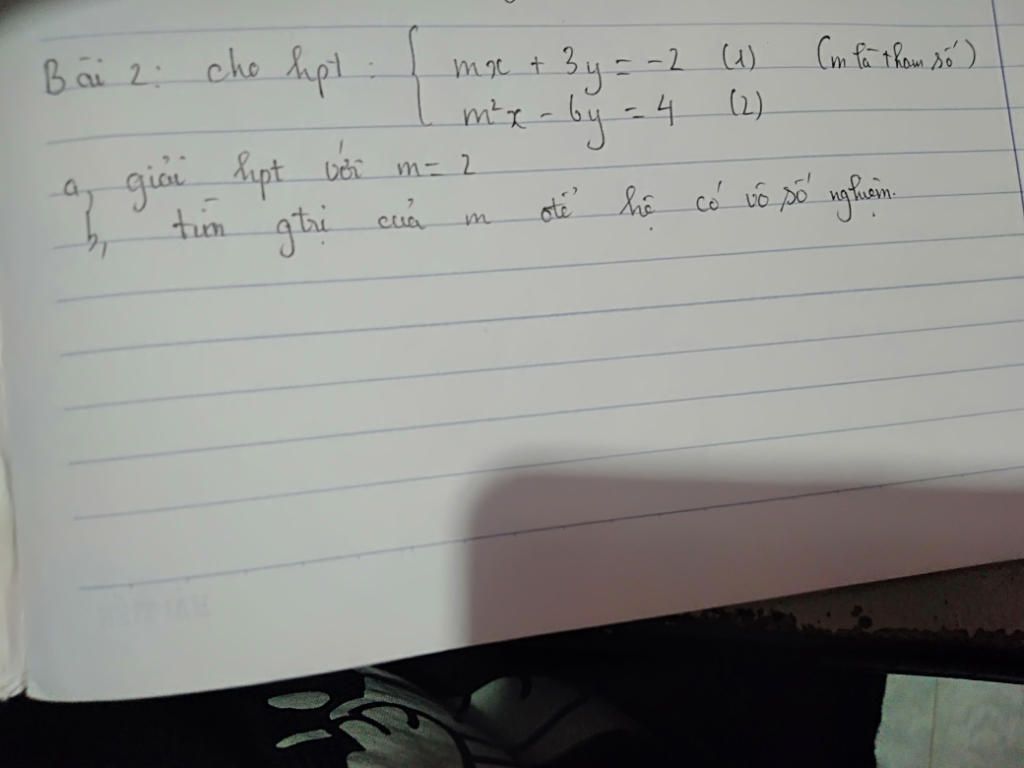 Bài 2: cho hpt: { mx + 3y = -2 (1) (m là tham số)
m²x - 6y = 4 (2)
a, giải hpt với m = 2
b, tìm gtrị của m để hệ có vô số nghiệm.